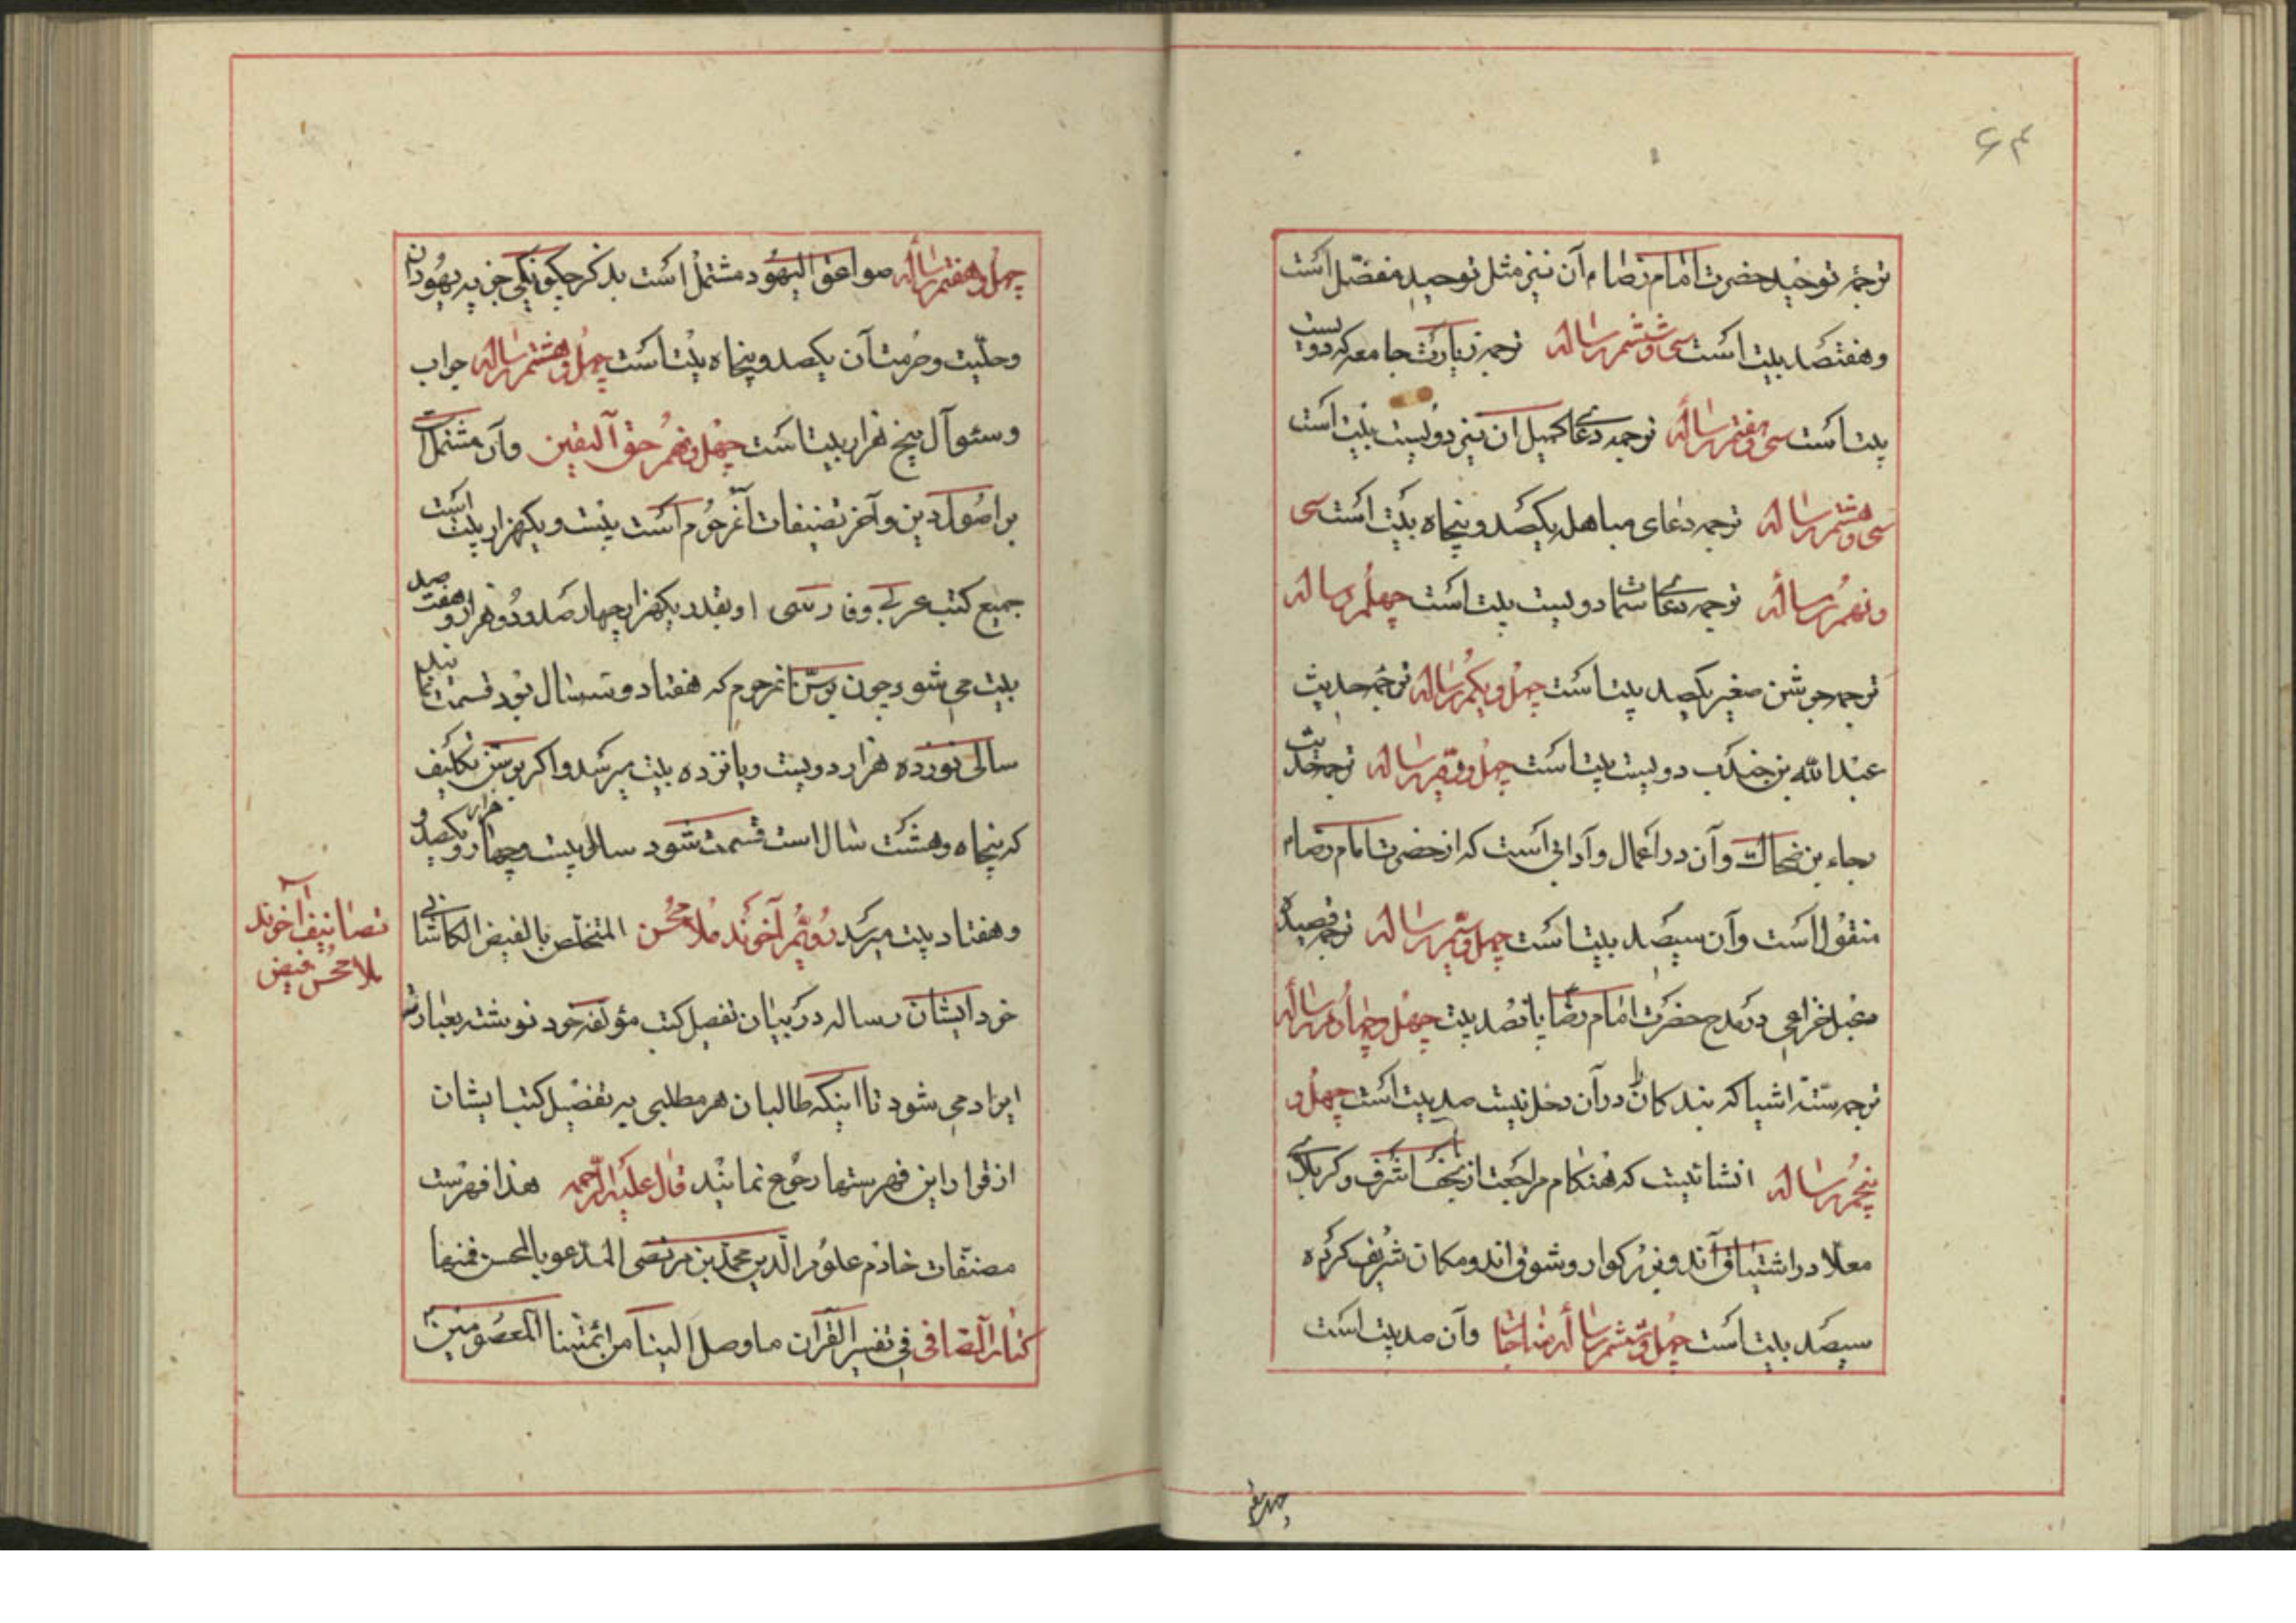 ۶۴
ترجمه توحید حضرت امام رضا م آن نیز مثل توحید مفضل است
و هفتصد بیت است سی و ششم رساله ترجمه زیارت جامعه که دویست
بیت است سی و هفتم رساله ترجمه دعائے کمیل آن نیز دویست بیت است
سی و هشتم رساله ترجمه دعای مباهله یکصد و پنجاه بیت است سی
و نهم رساله ترجمه دعائے سمات دویست بیت است چهلم رساله
ترجمه جوشن صغیر یکصد بیت است چهل و یکم رساله ترجمه حدیث
عبدالله بن جندب دویست بیت است چهل و دویم رساله ترجمه حدیث
رجاء بن ضحاک و آن در اعمال و آدابی است که از حضرت امام رضا م
منقول است و آن سیصد بیت است چهل و سیم رساله ترجمه قصیده
دعبل خزاعی در مدح حضرت امام رضا پانصد بیت چهل و چهارم رساله
ترجمه ستة اشیا که بندکان را در آن دخل نیست صد بیت است چهل و
پنجم رساله انشائیست که هنکام مراجعت از نجف اشرف و کربلائے
معلا در اشتیاق آن دو بزرکوار و شوق آن دو مکان شریف کرده
سیصد بیت است چهل و ششم رساله مناجات و آن صد بیت است
چهل و هفتم
چهل و هفتم رساله صواعق الیهود مشتمل است بذکر چکونکی جزیه یهودان
و حلیت و حرمت آن یکصد و پنجاه بیت است چهل و هشتم رساله جواب
و سئوال پنج هزار بیت است چهل و نهم حق الیقین و آن مشتمل است
بر اصول دین و آخر تصنیفات آنمرحوم است بیست و یکهزار بیت است
جمیع کتب عربی و فارسی او بقدر یکهزار چهار صد و دو هزار و هفت صد
بیت می شود چون بر سن آنمرحوم که هفتاد و سه سال بود قسمت نمایند
سالی نوزده هزار دویست و پانزده بیت میرسد و اکر بر سن تکلیف
که پنجاه و هشت سال است قسمت شود سالی بیست و چهار هزار و یکصد و
و هفتاد بیت میرسد دویم آخوند ملا محسن المتخلص بالفیض الکاشانی
خود ایشان رساله در بیان تفصیل کتب مؤلفه خود نوشته بعبارته
ایراد می شود تا اینکه طالبان هر مطلبی به تفصیل کتب ایشان
از قرار این فهرستها رجوع نمایند قال علیه الرحمه هذا فهرست
مصنفات خادم علوم الدین محمد بن مرتضی المدعو بالمحسن فمنها
کتاب الصافی فی تفسیر القرآن ما وصل الینا من ائمتنا المعصومین
تصانیف آخوند
ملا محسن فیض